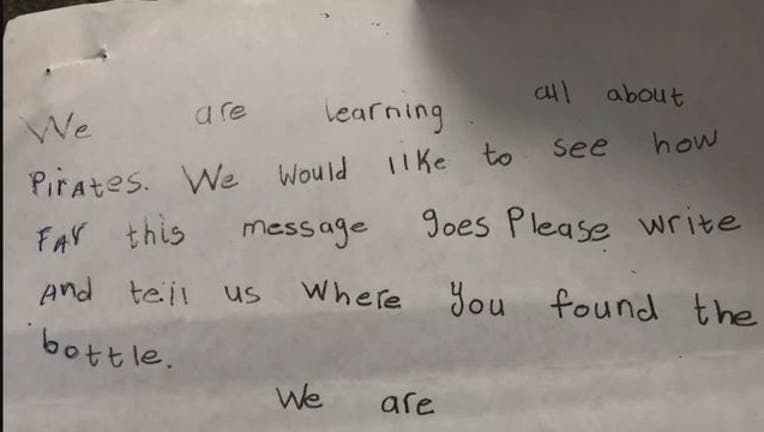 We are learning all about
PirAtes. We would like to see how
FAr this message goes Please write
And tell us where you found the
bottle.
We are